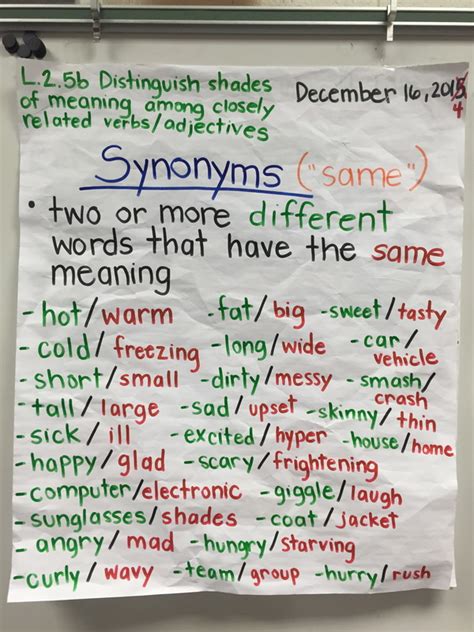 L.2.5b Distinguish shades December 16, 2015
of meaning among closely 4
related verbs/adjectives
Synonyms ("same")
• two or more different
words that have the same
meaning
-hot/warm -fat/big -sweet/tasty
-cold/freezing -long/wide -car/
vehicle
-short/small -dirty/messy -smash/
crash
-tall/large -sad/upset -skinny/thin
-sick/ill -excited/hyper -house/home
-happy/glad -scary/frightening
-computer/electronic -giggle/laugh
-sunglasses/shades -coat/jacket
-angry/mad -hungry/starving
-curly/wavy -team/group -hurry/rush